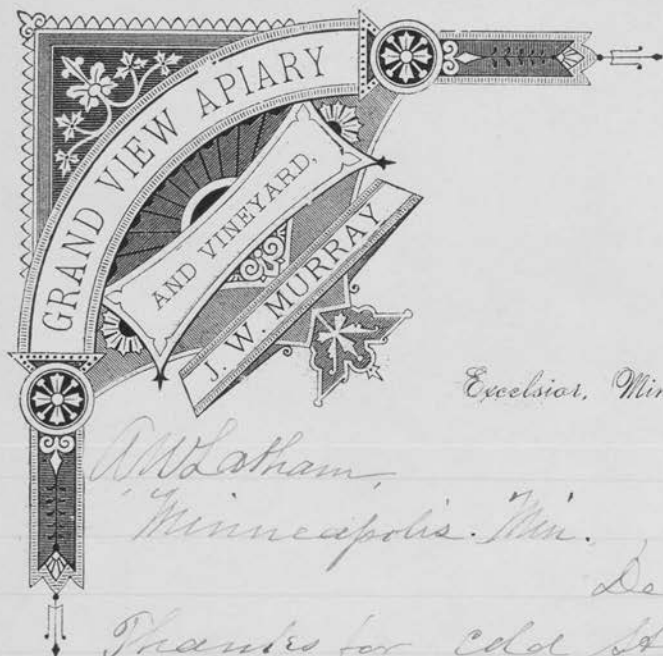 GRAND VIEW APIARY
AND VINEYARD,
J. W. MURRAY
Excelsior, Min
A W Latham,
Minneapolis. Min.
De
Thanks for